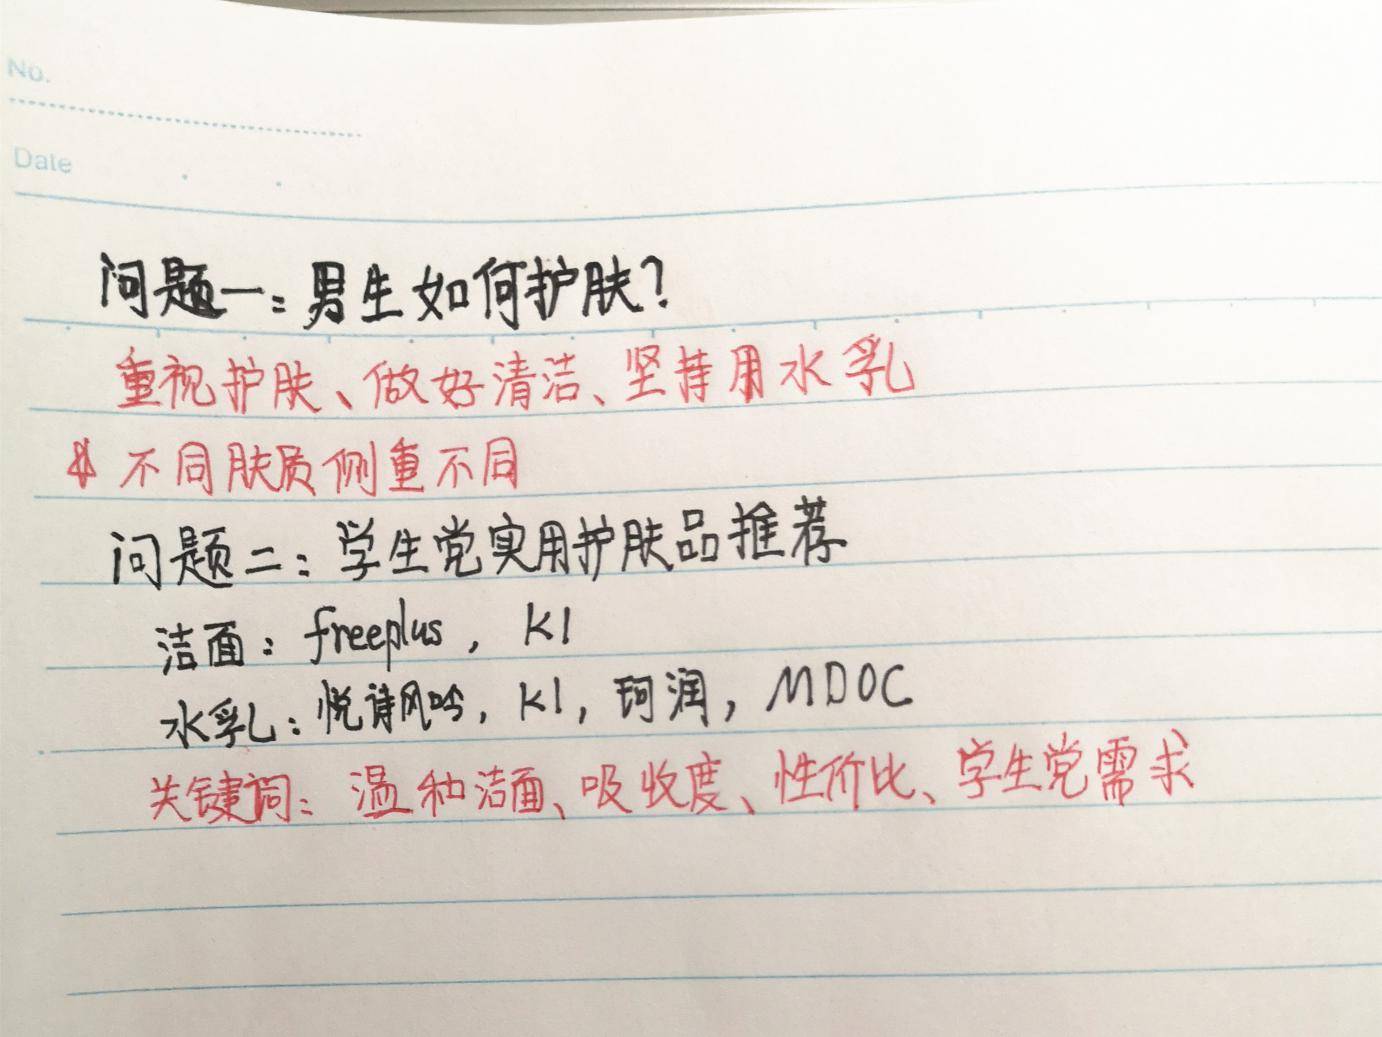 No.
Date
问题一:男生如何护肤?
重视护肤、做好清洁、坚持用水乳
不同肤质侧重不同
问题二:学生党实用护肤品推荐
洁面:freeplus,K1
水乳:悦诗风吟,K1,珂润,MDOC
关键词:温和洁面、吸收度、性价比、学生党需求